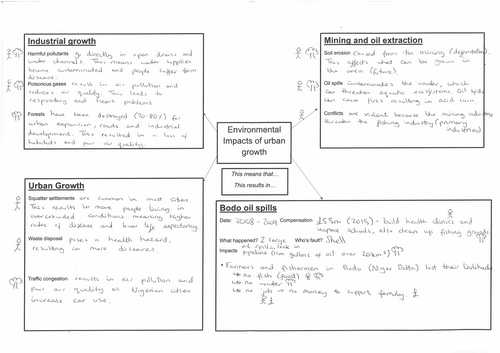 Industrial growth
Harmful pollutants go directly in open drains and
water channels. This means water supplies
become contaminated and people suffer from
disease.
Poisonous gases result in air pollution and
reduces air quality. This leads to
respiratory and heart problems
Forests have been destroyed (70-80%) for
urban expansion, roads and industrial
development. This resulted in a loss of
habitats and poor air quality.
Mining and oil extraction
Soil erosion caused from tin mining (deforestation).
This affects what can be grown in
the area (future).
Oil spills contaminates the water, which
can threaten aquatic ecosystems. Oil spills
can cause fires resulting in acid rain.
Conflicts are violent because the mining industry
threaten the fishing industry (primary
industries)
Environmental
Impacts of urban
growth
This means that…
This results in…
Urban Growth
Squatter settlements are common in most cities.
This results in more people living in
overcrowded conditions meaning higher
rates of disease and lower life expectancy.
Waste disposal poses a health hazard,
resulting in more diseases.
Traffic congestion results in air pollution and
poor air quality as Nigerian cities
increase car use.
Bodo oil spills
Date: 2008 - 2009 Compensation £55m (2015) - build health clinics and
improve schools, also clean up fishing grounds
What happened? 2 large oil spills, leak in Who's fault? Shell
Impacts pipeline (11m gallons of oil over 20km²)
* Farmers and fishermen in Bodo (Niger Delta) lost their livelihoods
↳ no fish (food)
↳ no water
↳ no job → no money to support family. £
££